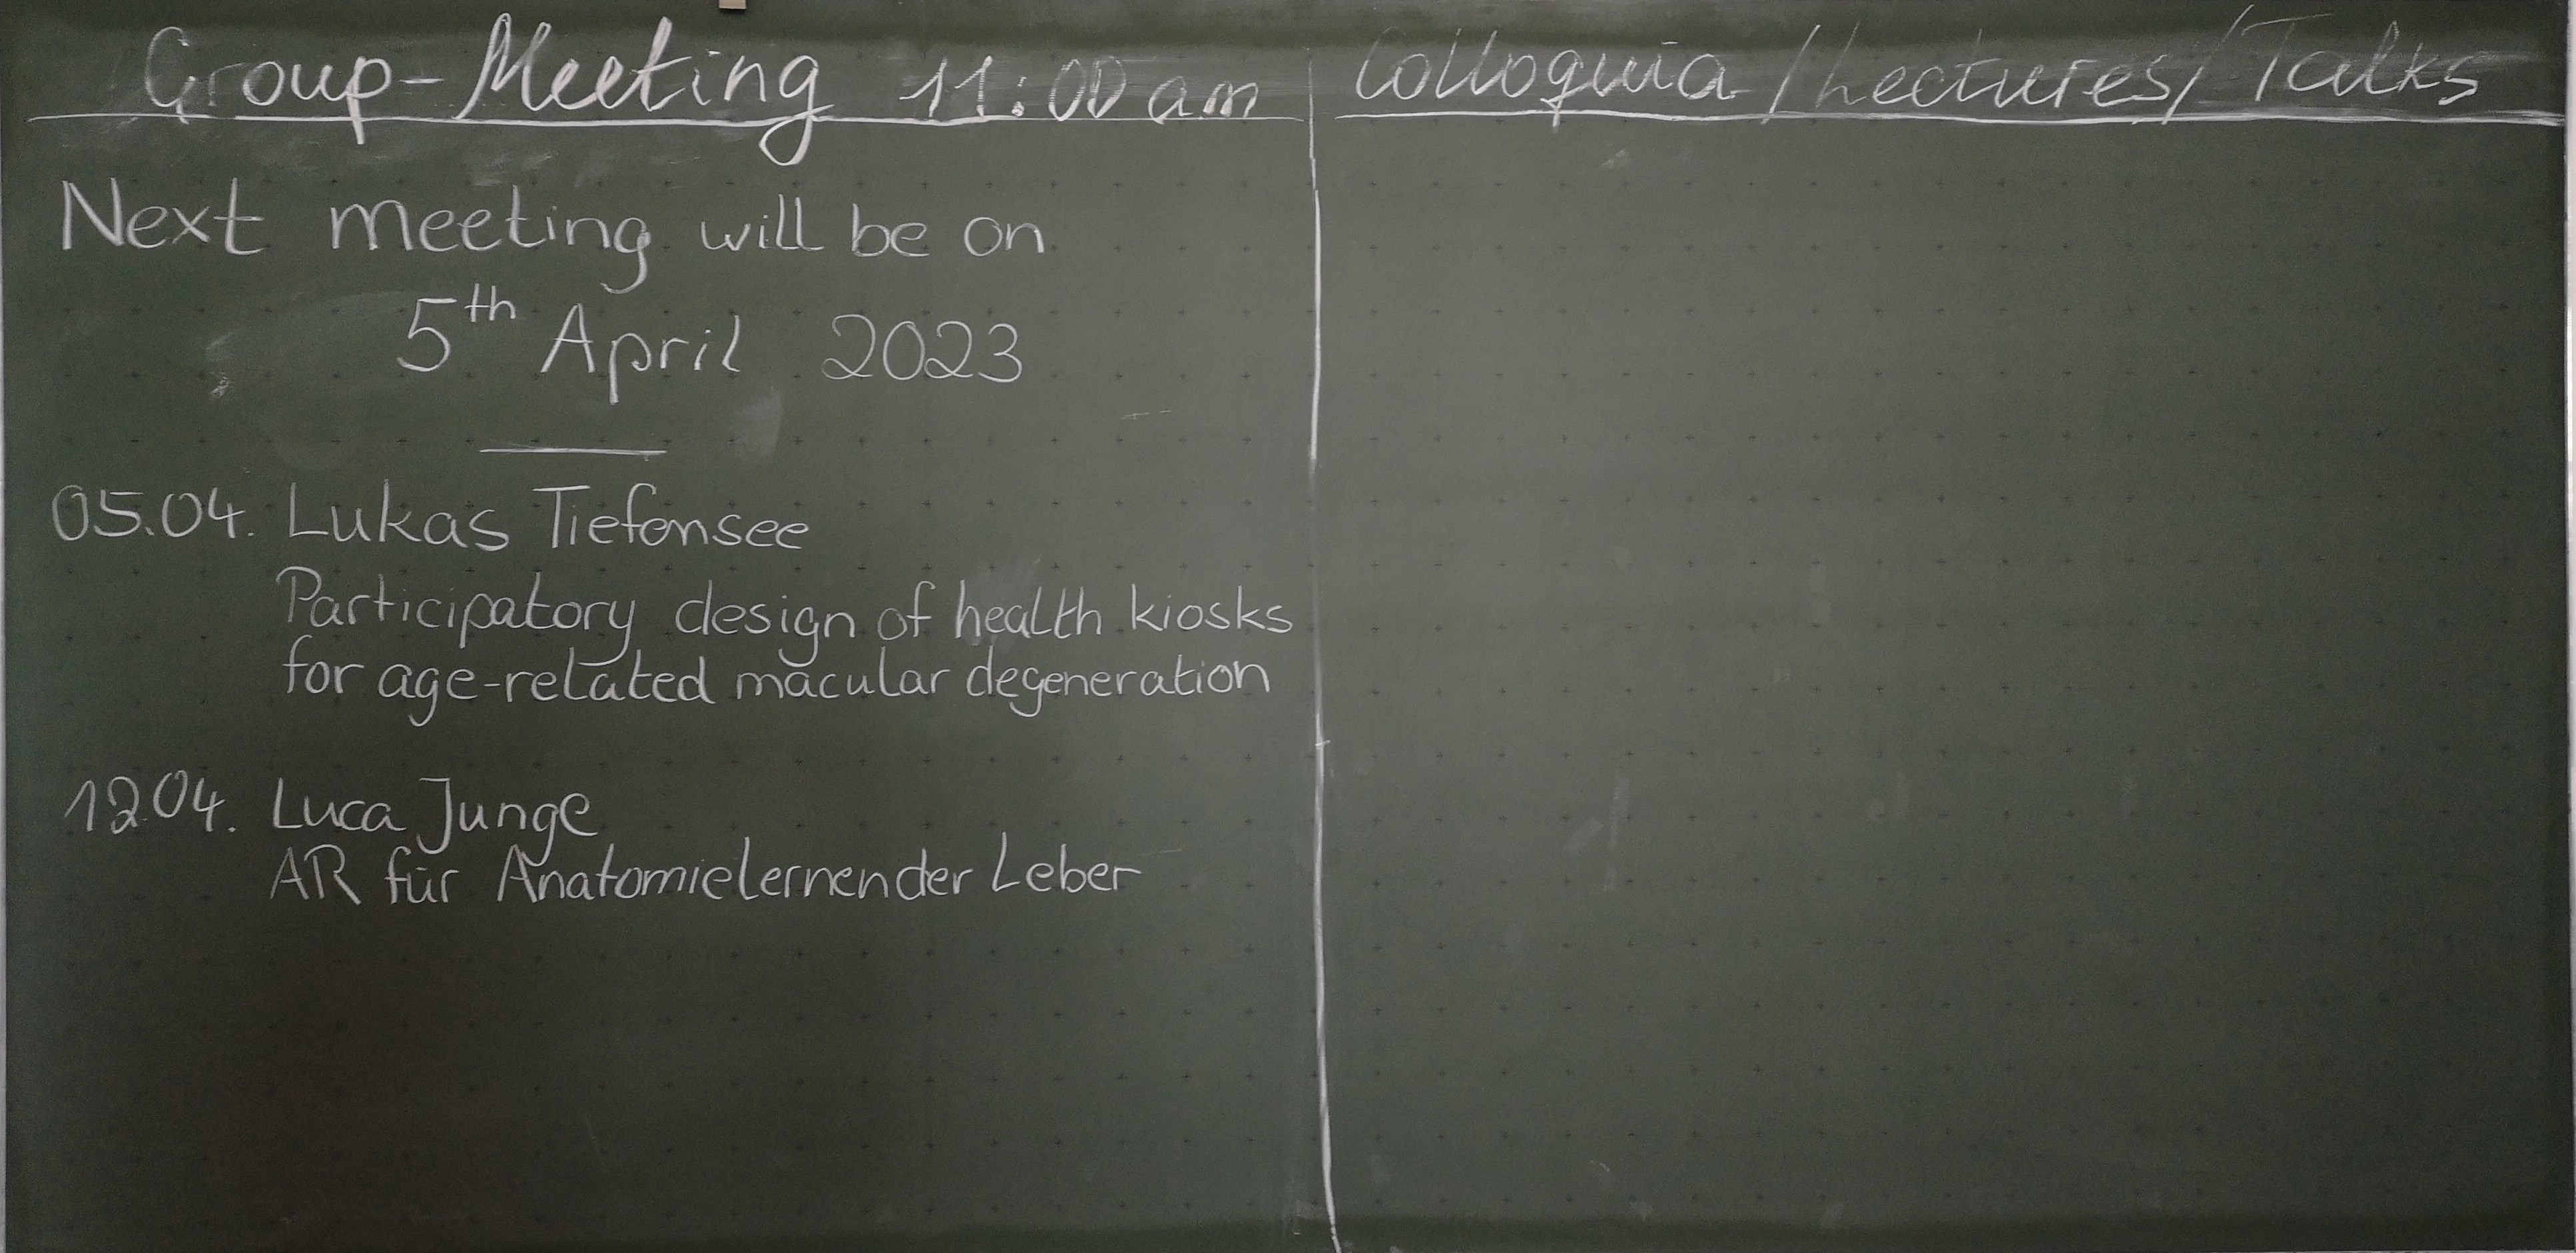 Group-Meeting 11:00 am
Next meeting will be on
5th April 2023
05.04. Lukas Tiefensee
Participatory design of health kiosks
for age-related macular degeneration
12.04. Luca Junge
AR für Anatomielernen der Leber
Colloquia/Lectures/Talks